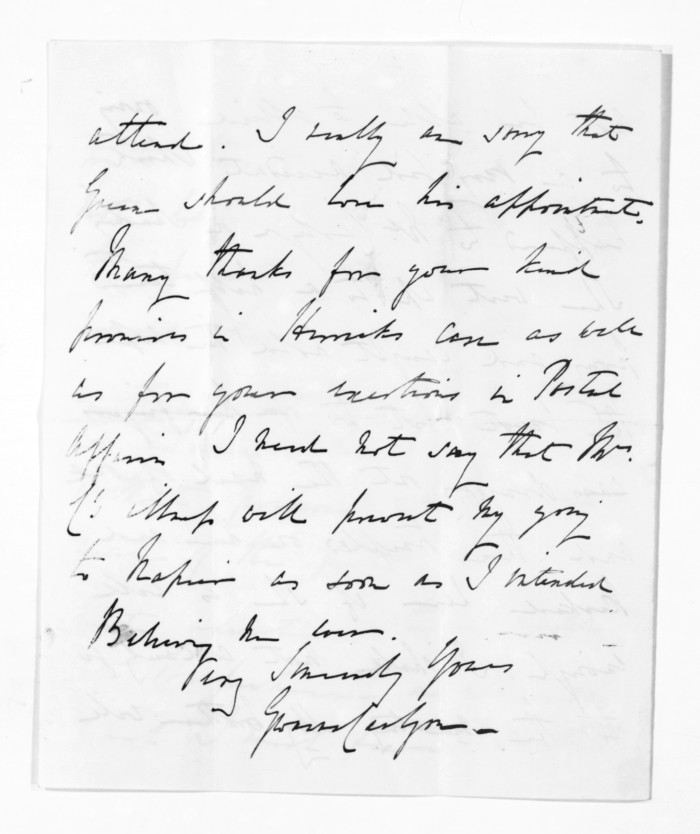 attend. I really am sorry that
Green should lose his appointment.
Many thanks for your kind
promises in Herricks case as well
as for your exertions in Postal
Affairs I need not say that Mrs.
C's illness will prevent my going
to Napier as soon as I intended
Believing me ever.
Very Sincerely Yours